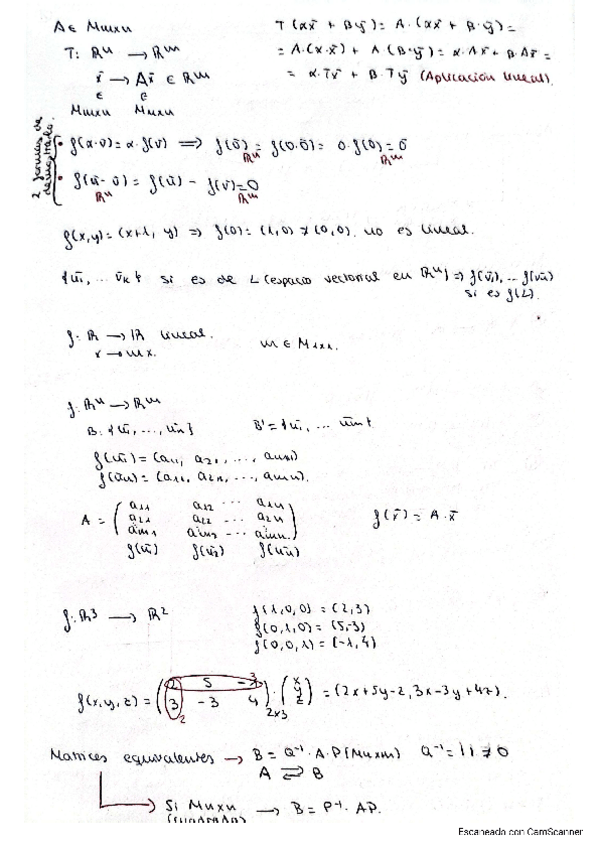 A ∈ Mmxn
T: ℝⁿ → ℝᵐ
x̄ → Ax̄ ∈ ℝᵐ
∈ ∈
Mnxn Mmxn
T(αx̄ + Bȳ) = A·(αx̄ + B·ȳ) =
= A·(α·x̄) + A(B·ȳ) = α·Ax̄ + B·Ax̄ =
= α·Tx̄ + B·Tȳ (Aplicación lineal).
2 formas de demostrarlo.
• f(α·v) = α·f(v) ⟹ f(0̄) = f(0·0̄) = 0·f(0) = 0̄
ℝⁿ ℝᵐ
• f(ū - ū) = f(ū) - f(v) = 0
ℝⁿ ℝᵐ
f(x,y) = (x+1, y) ⟹ f(0) = (1,0) ≠ (0,0). no es lineal.
{ū₁, ... v̄k} si es de L (espacio vectorial en ℝⁿ) ⟹ f(v̄₁), ... f(ūn)
si es f(L).
f: ℝ → ℝ lineal.
x → mx.
m ∈ M1x1.
f: ℝⁿ → ℝᵐ
B: {ū₁, ..., ūn}
B' = {ū₁, ... ūm}
f(ū₁) = (a11, a21, ..., am1)
f(ūn) = (a1n, a2n, ..., amn).
A = ( a11 a12 ... a1n
a21 a22 ... a2n
am1 am2 ... amn. )
f(ū₁) f(ū₂) f(ūn)
f(x̄) = A·x̄
f: ℝ³ → ℝ²
f(1,0,0) = (2,3)
f(0,1,0) = (5,-3)
f(0,0,1) = (-1,4)
f(x,y,z) = ( 2 5 -1 3
3 -3 4 )2x3 · ( x y z ) = (2x+5y-z, 3x-3y+4z).
2
Matrices equivalentes → B = Q⁻¹·A·P (Mmxn) Q⁻¹ = | | ≠ 0
A ⇄ B
→ Si Mnxn → B = P⁻¹·AP.
(cuadrada)
Escaneado con CamScanner